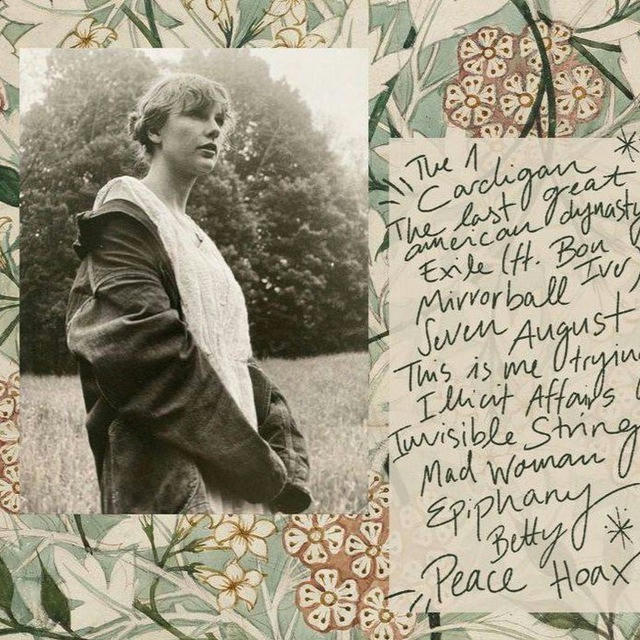 The 1
Cardigan
The last great
american dynasty
Exile (ft. Bon
Iver)
Mirrorball
Seven August
This is me trying
Illicit Affairs
Invisible String
Mad Woman
Epiphany
Betty
Peace Hoax